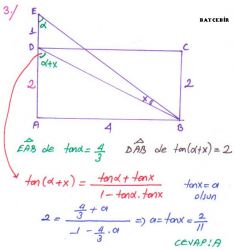 3./
BATCEBİR
E
1
α
D
C
α+x
2
x
2
A
4
B
EAB de tanα = 4/3
DAB de tan(α+x) = 2
tan(α+x) = tanα + tanx / 1 - tanα.tanx
tanx = a
olsun
2 = 4/3 + a / 1 - 4/3.a => a = tanx = 2/11
CEVAP: A